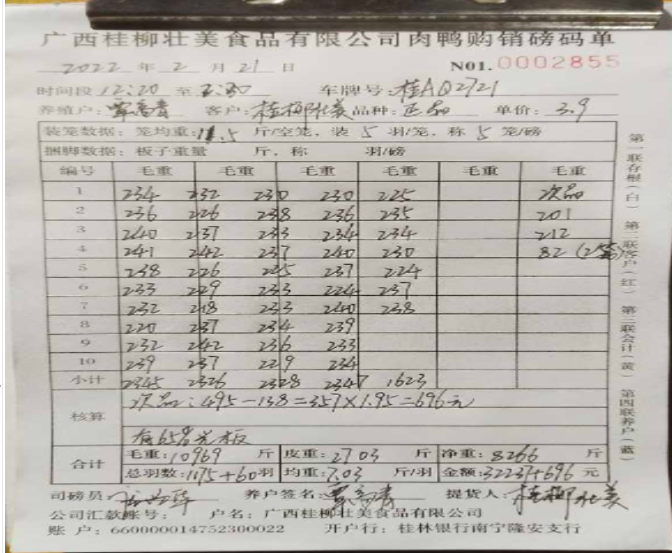 广西桂柳壮美食品有限公司肉鸭购销磅码单
2022 年 2 月 21 日 N01. 0002855
时间段 12:20 至 2:30 车牌号: 桂AQ2721
养殖户: 客户: 桂柳壮美 品种: 正品 单价: 3.9
装笼数据: 笼均重: 11.5 斤/空笼, 装 5 羽/笼, 称 5 笼/磅
捆脚数据: 板子重量 斤, 称 羽/磅
编号 毛重 毛重 毛重 毛重 毛重 毛重 毛重
1 234 232 230 230 225 次品
2 236 226 238 236 235 201
3 240 237 233 234 234 212
4 241 242 237 240 230 82
5 238 226 225 237 224
6 233 229 233 224 237
7 232 218 233 240 238
8 220 237 234 239
9 232 242 236 233
10 239 237 229 234
小计 2345 2326 2328 2347 1623
核算 次品: 495-138=357×1.95=696元
有65省光板
合计 毛重: 10969 斤 皮重: 2703 斤 净重: 8266 斤
总羽数: 1175+60羽 均重: 7.03 斤/羽 金额: 32237+696 元
司磅员: 养户签名: 提货人: 桂柳壮美
公司汇款账号: 户名: 广西桂柳壮美食品有限公司
账 户: 660000014752300022 开户行: 桂林银行南宁隆安支行
第一联存根(白) 第二联客户(红) 第三联会计(黄) 第四联养户(蓝)